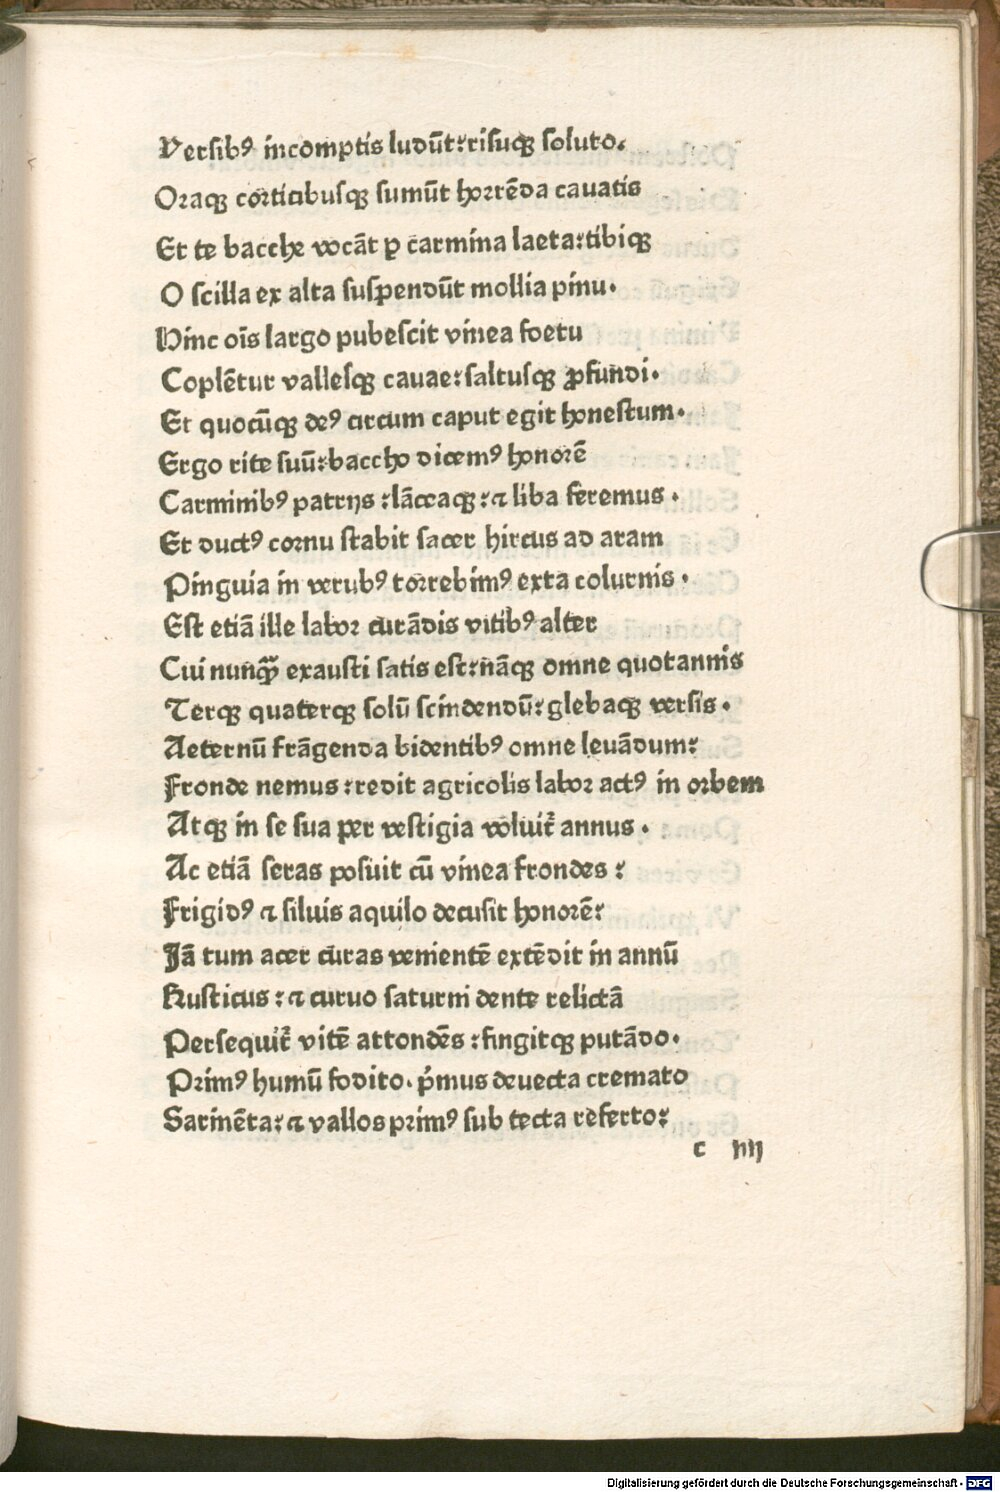 Versibꝰ incomptis ludūt: risuqꝫ soluto.
Oraqꝫ corticibusqꝫ sumūt horrēda cavatis
Et te bacche vocāt ꝑ carmina laeta: tibiqꝫ
O scilla ex alta suspendūt mollia pinu.
Hinc oīs largo pubescit vinea foetu
Coplētur vallesqꝫ cavae: saltusqꝫ ꝓfundi.
Et quocūqꝫ deꝰ circum caput egit honestum.
Ergo rite suū: baccho dicemꝰ honorē
Carminibꝰ patrijs: lāceaqꝫ: ⁊ liba feremus.
Et ductꝰ cornu stabit sacer hircus ad aram
Pinguia in verubꝰ torrebimꝰ exta colurnis.
Est etiā ille labor curādis vitibꝰ alter
Cui nunqᷓꝫ exausti satis est: nāqꝫ omne quotannis
Terqꝫ quaterqꝫ solū scindendū: glebaqꝫ versis.
Aeternū frāgenda bidentibꝰ omne levādum:
Fronde nemus: redit agricolis labor actꝰ in orbem
Atqꝫ in se sua per vestigia voluit᷑ annus.
Ac etiā seras posuit cū vinea frondes:
Frigidꝰ ⁊ siluis aquilo decusit honorē:
Iā tum acer curas venientē extēdit in annū
Rusticus: ⁊ curuo saturni dente relictā
Persequit᷑ vitē attondēs: fingitqꝫ putādo.
Primꝰ humū fodito. p̄mus devecta cremato
Sarmēta: ⁊ vallos primꝰ sub tecta referto:
c iiij
Digitalisierung gefördert durch die Deutsche Forschungsgemeinschaft - DFG